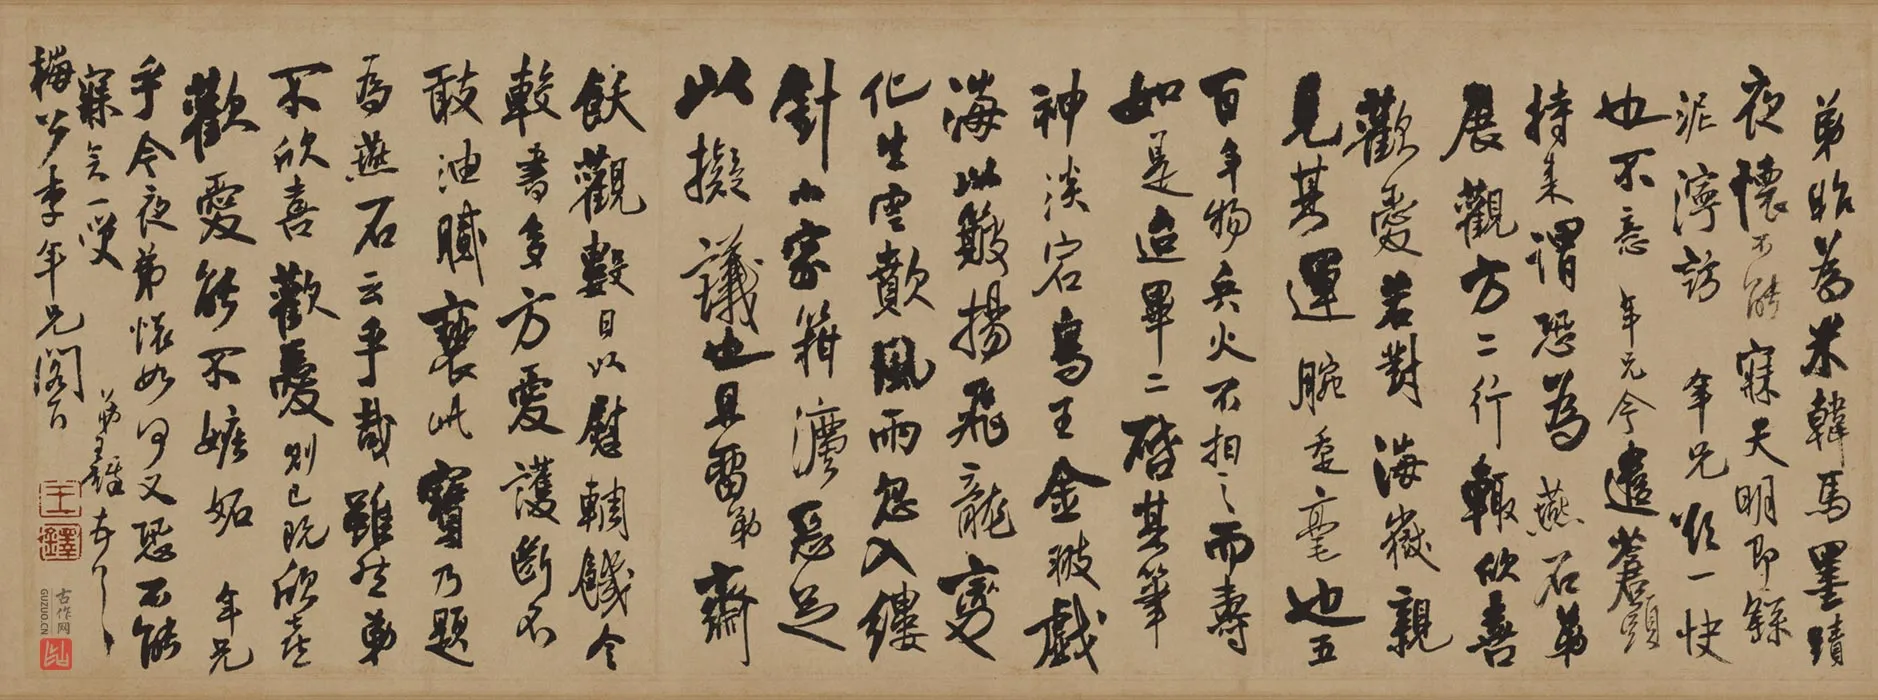 弟昨為米韓馬墨蹟
夜懷不能寐天明即繇
泥濘訪 年兄欣一快
也不意 年兄今遣蒼頭
持來謂恐為燕石弟
展觀方二行輒欣喜
歡憂若對海嶽親
見其運腕垂毫也五
百年物兵火不相之而壽
如是迫畢二啓其筆
神淡宕鳥王金翅戲
海以簸揚飛龍變
化生雲歕風雨忽入縷
針小家籍瀆惡足
以擬議也且留弟齋
飫觀數日以慰輖饑令
較書多方愛護斷不
敢油膩褻此寶乃題
為燕石云乎哉雖然弟
不欣喜歡憂則已既欣喜
歡愛能不嫉妬 年兄
乎今夜弟懷如何又恐不能
寐矣一笑
梅公李年兄閣下
弟王鐸 頓首
王鐸
古作网
GUZUO.CN